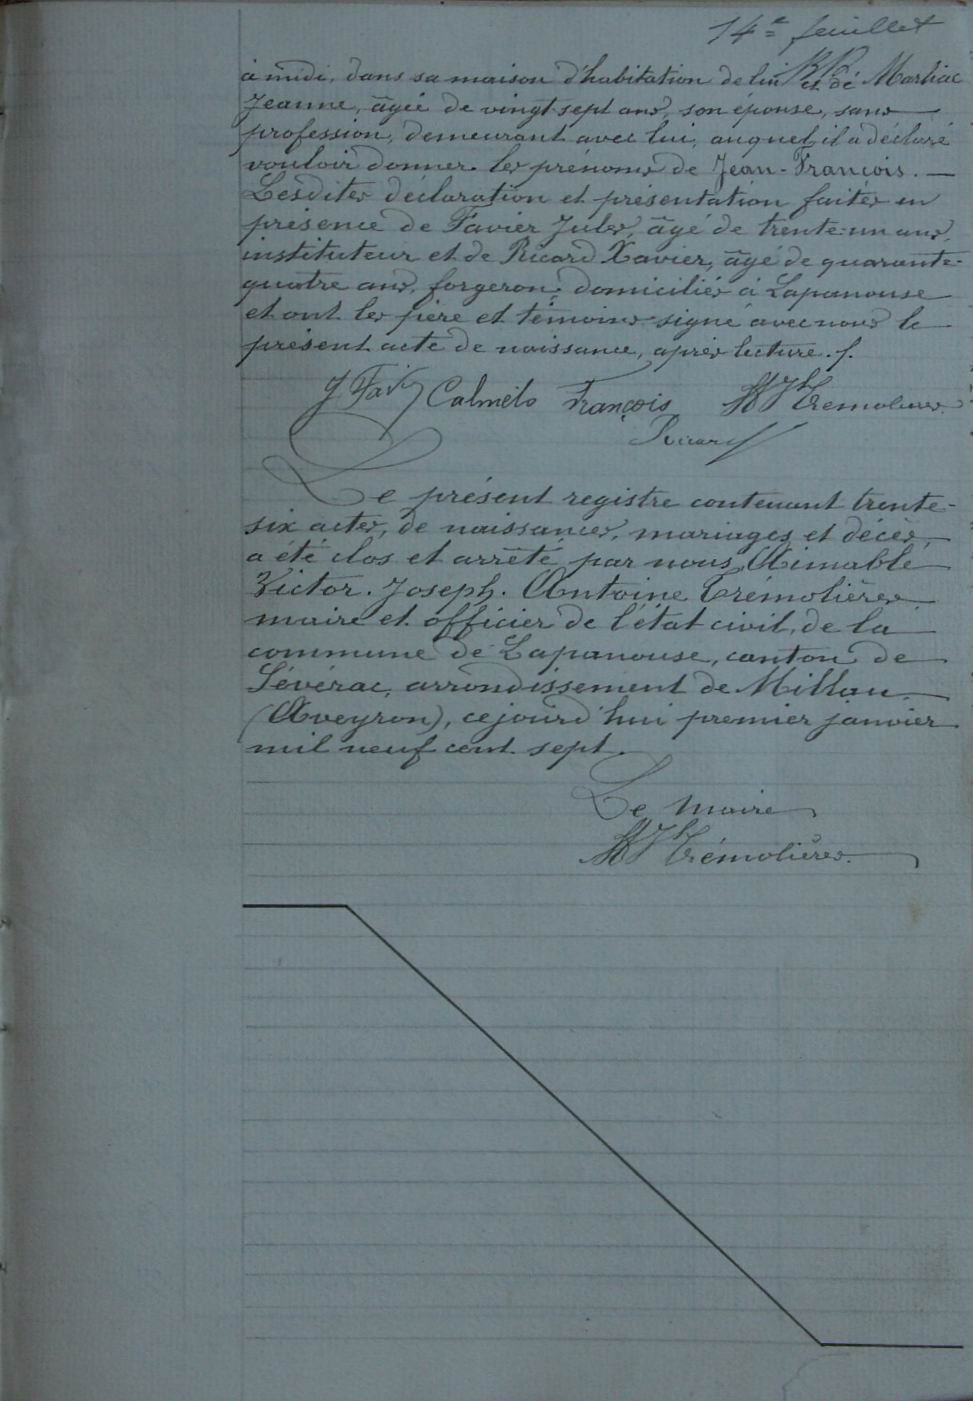 14e feuillet
à midi, dans sa maison d'habitation de lui et de Marliac
Jeanne, âgée de vingt-sept ans, son épouse, sans
profession, demeurant avec lui, auquel il a déclaré
vouloir donner les prénoms de Jean-François. —
Lesdites déclaration et présentation faites en
présence de Favier Jules, âgé de trente-un ans,
instituteur et de Ricard Xavier, âgé de quarante-
quatre ans, forgeron, domiciliés à Lapanouse
et ont les père et témoins signé avec nous le
présent acte de naissance, après lecture. /.
J Favier Calmels François AVJ Trémolières
Ricard
Le présent registre contenant trente-
six actes, de naissances, mariages et décès,
a été clos et arrêté par nous, Aimable
Victor. Joseph. Antoine Trémolières
maire et officier de l'état civil, de la
commune de Lapanouse, canton de
Sévérac, arrondissement de Millau
(Aveyron), cejourd'hui premier janvier
mil neuf cent sept.
Le Maire
AVJ Trémolières.